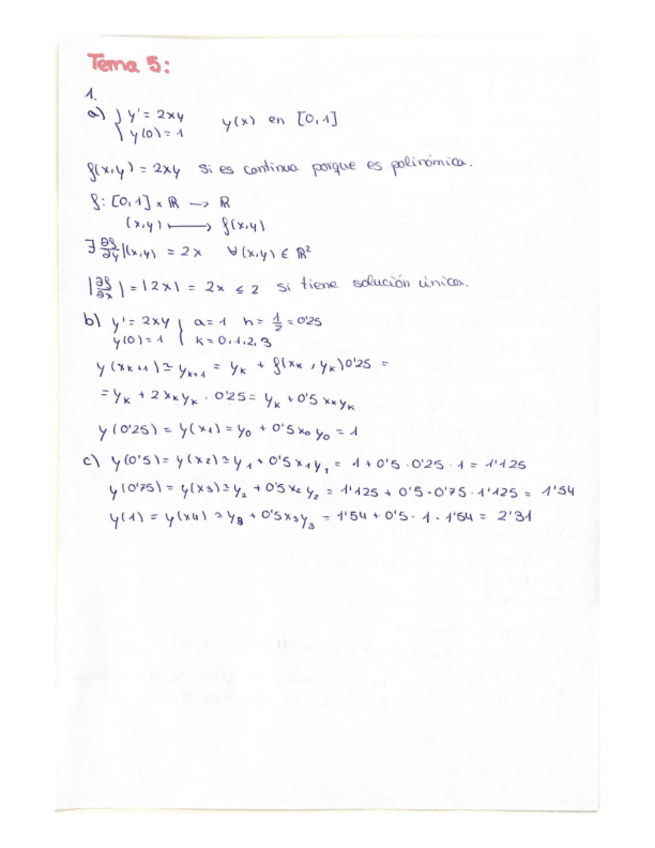 Tema 5:
1.
a) { y' = 2xy   y(x) en [0,1]
y(0) = 1
f(x,y) = 2xy si es continua porque es polinómica.
f: [0,1] x ℝ → ℝ
(x,y) ⟼ f(x,y)
∃ ∂f/∂y |(x,y) = 2x   ∀(x,y) ∈ ℝ²
|∂f/∂x| = |2x| = 2x ≤ 2 si tiene solución única.
b) y' = 2xy { a = 1   h = 1/2 = 0'25
y(0) = 1   k = 0,1,2,3
y(xk+1) ≃ yk+1 = yk + f(xk, yk)0'25 =
= yk + 2xkyk · 0'25 = yk + 0'5 xkyk
y(0'25) = y(x1) = y0 + 0'5x0 y0 = 1
c) y(0'5) = y(x2) ≃ y1 + 0'5x1y1 = 1 + 0'5 · 0'25 · 1 = 1'125
y(0'75) = y(x3) ≃ y2 + 0'5x2 y2 = 1'125 + 0'5 · 0'75 · 1'125 = 1'54
y(1) = y(x4) ≃ y3 + 0'5x3y3 = 1'54 + 0'5 · 1 · 1'54 = 2'31